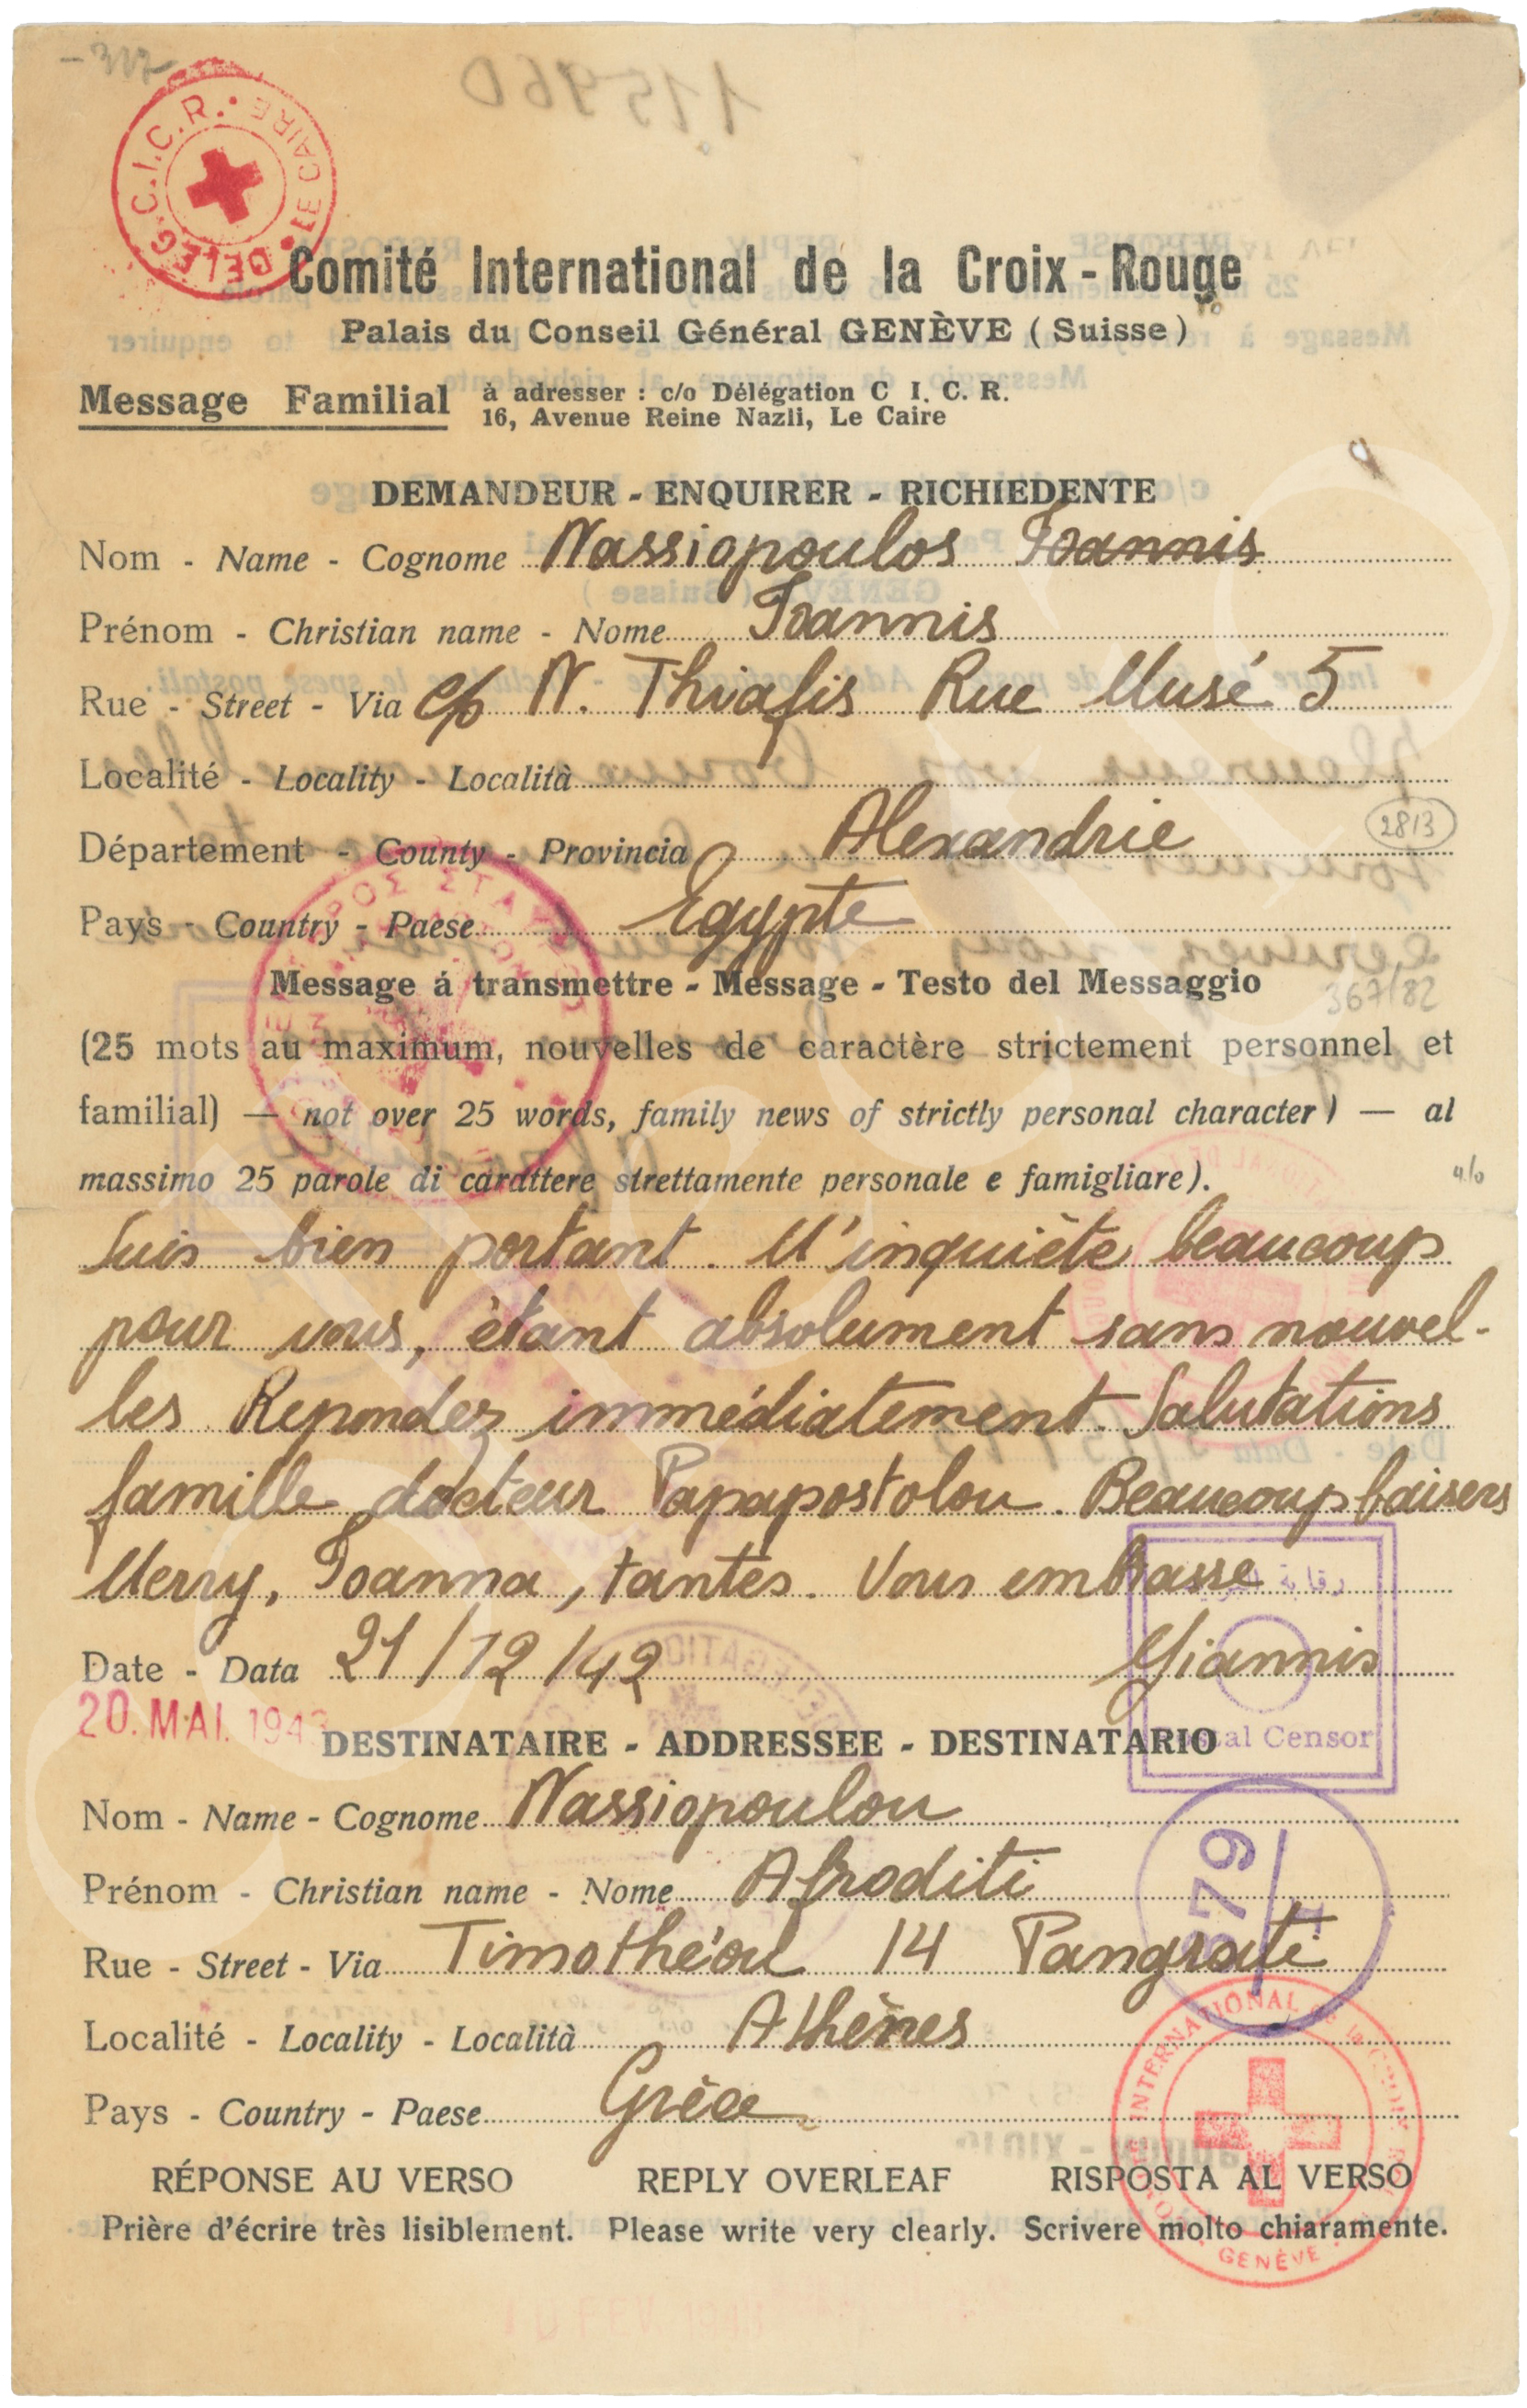 -317
115960
DELEG. C.I.C.R. • LE CAIRE •
Comité International de la Croix-Rouge
Palais du Conseil Général GENÈVE (Suisse)
Message Familial à adresser : c/o Délégation C I. C. R.
16, Avenue Reine Nazli, Le Caire
DEMANDEUR - ENQUIRER - RICHIEDENTE
Nom - Name - Cognome Nassiopoulos Ioannis
Prénom - Christian name - Nome Ioannis
Rue - Street - Via c/o N. Thiafis Rue Musé 5
Localité - Locality - Località
Département - County - Provincia Alexandrie
2813
Pays - Country - Paese Egypte
Message á transmettre - Message - Testo del Messaggio
367/82
(25 mots au maximum, nouvelles de caractère strictement personnel et
familial) — not over 25 words, family news of strictly personal character) — al
massimo 25 parole di carattere strettamente personale e famigliare).
Suis bien portant. M'inquiéte beaucoup
pour vous, étant absolument sans nouvel-
les Repondez immédiatement. Salutations
famille docteur Papapostolou. Beaucoup baisers
Merry, Ioanna, tantes. Vous embrasse
Date - Data 21/12/42 Giannis
20. MAI. 1943
DESTINATAIRE - ADDRESSEE - DESTINATARIO
Censor
Nom - Name - Cognome Nassiopoulou
Prénom - Christian name - Nome Afroditi
579
Rue - Street - Via Timothéou 14 Pangrati
Localité - Locality - Località Athènes
Pays - Country - Paese Grèce
INTERNATIONAL de la CROIX
GENÈVE
RÉPONSE AU VERSO REPLY OVERLEAF RISPOSTA AL VERSO
Prière d'écrire très lisiblement. Please write very clearly. Scrivere molto chiaramente.